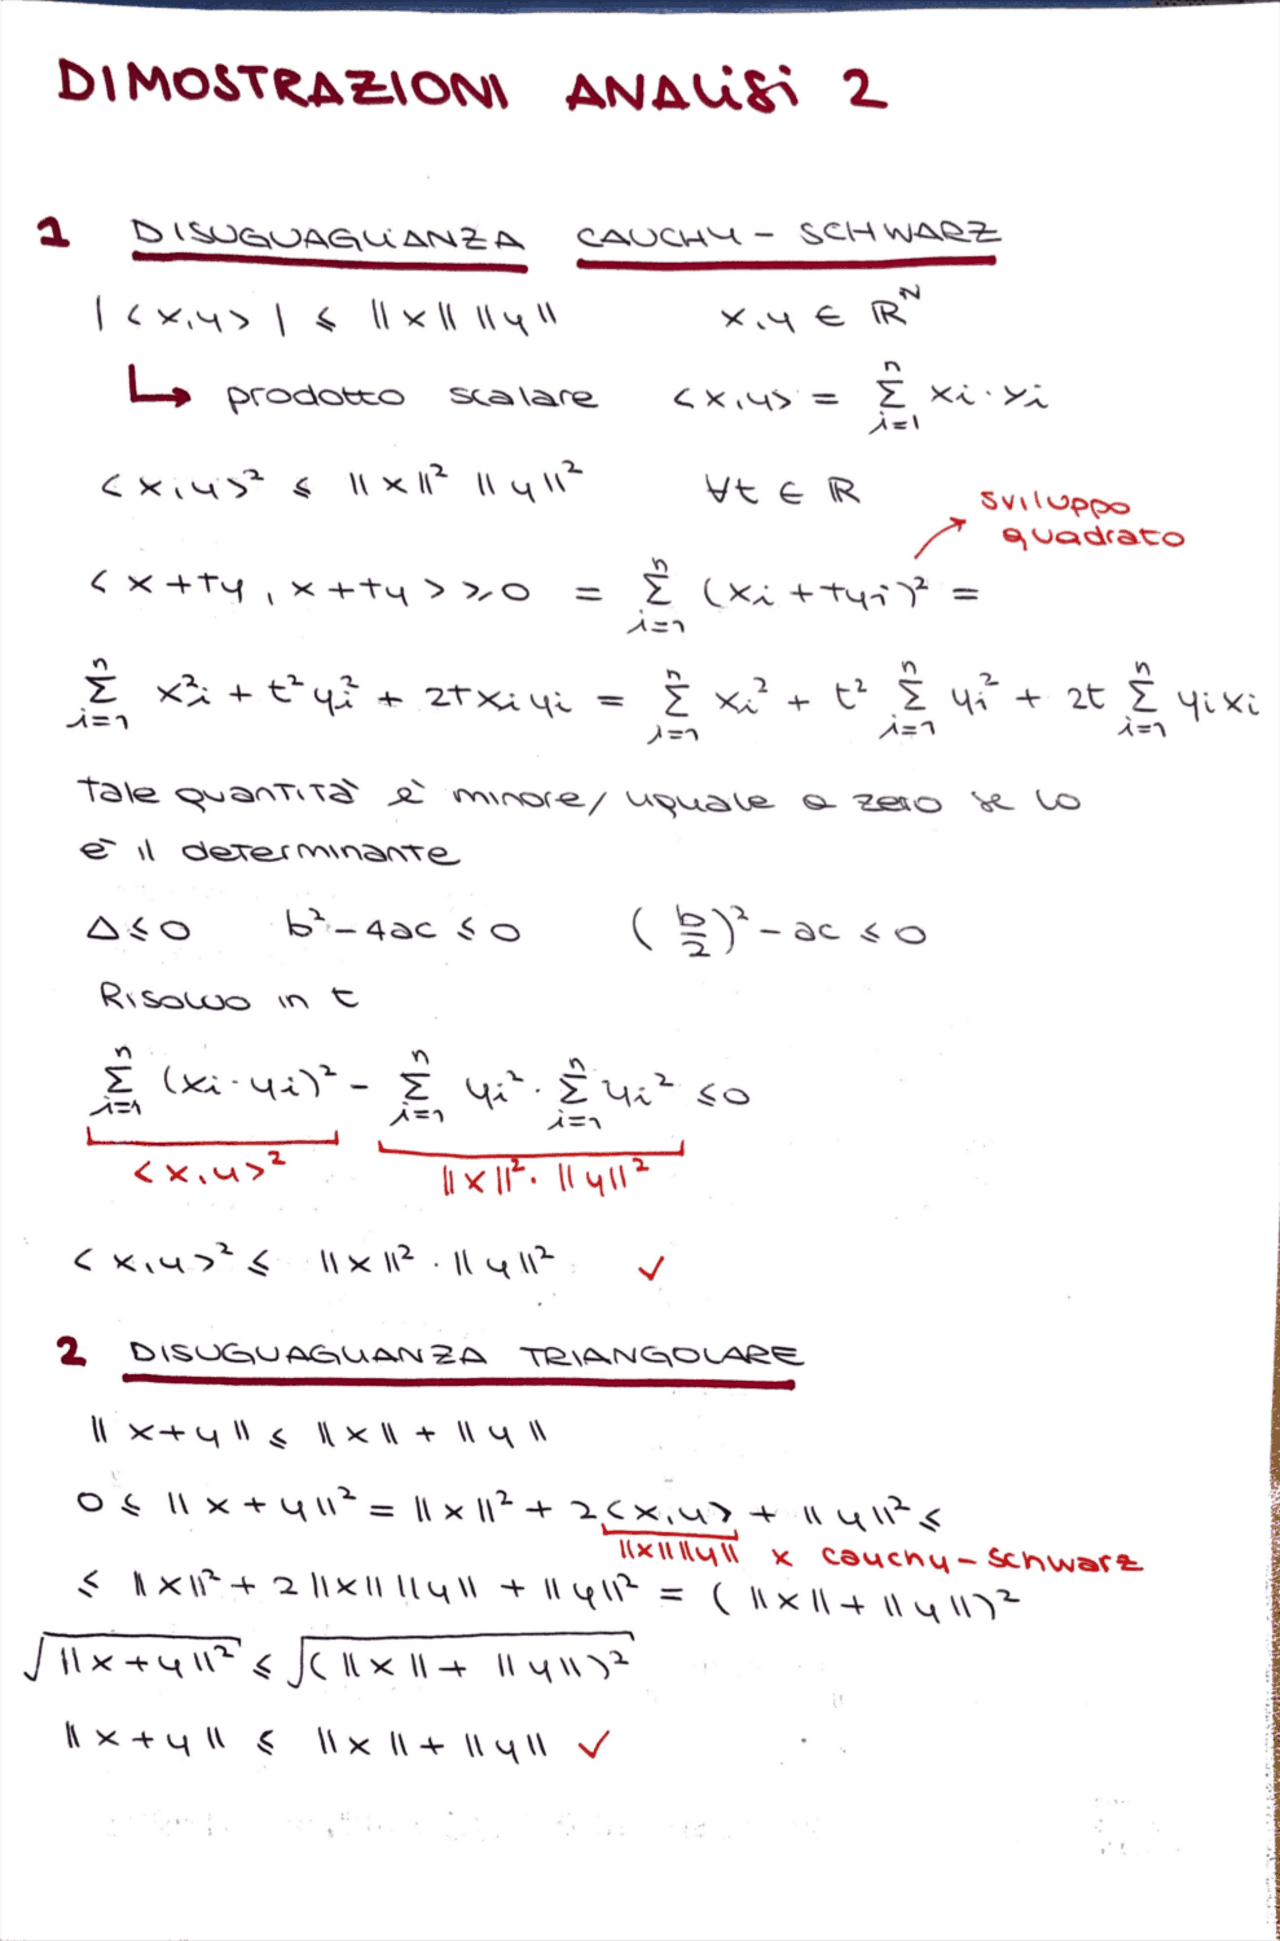 DIMOSTRAZIONI ANALISI 2
1 DISUGUAGLIANZA CAUCHY - SCHWARZ
|<x,y>| ≤ ||x|| ||y|| x,y ∈ ℝᴺ
↳ prodotto scalare <x,y> = Σⁿᵢ₌₁ xi · yi
<x,y>² ≤ ||x||² ||y||² ∀t ∈ ℝ
sviluppo
quadrato
<x+ty, x+ty> ≥ 0 = Σⁿᵢ₌₁ (xi + tyi)² =
Σⁿᵢ₌₁ x²i + t²yi² + 2txiyi = Σⁿᵢ₌₁ xi² + t² Σⁿᵢ₌₁ yi² + 2t Σⁿᵢ₌₁ yixi
tale quantità è minore/uguale a zero se lo
è il determinante
Δ ≤ 0 b² - 4ac ≤ 0 (b/2)² - ac ≤ 0
Risolvo in t
Σⁿᵢ₌₁ (xi · yi)² - Σⁿᵢ₌₁ yi² · Σⁿᵢ₌₁ yi² ≤ 0
<x,y>² ||x||² · ||y||²
<x,y>² ≤ ||x||² · ||y||² ✓
2 DISUGUAGLIANZA TRIANGOLARE
||x+y|| ≤ ||x|| + ||y||
0 ≤ ||x+y||² = ||x||² + 2<x,y> + ||y||² ≤
||x|| ||y|| x cauchy - schwarz
≤ ||x||² + 2||x|| ||y|| + ||y||² = (||x|| + ||y||)²
√||x+y||² ≤ √(||x|| + ||y||)²
||x+y|| ≤ ||x|| + ||y|| ✓